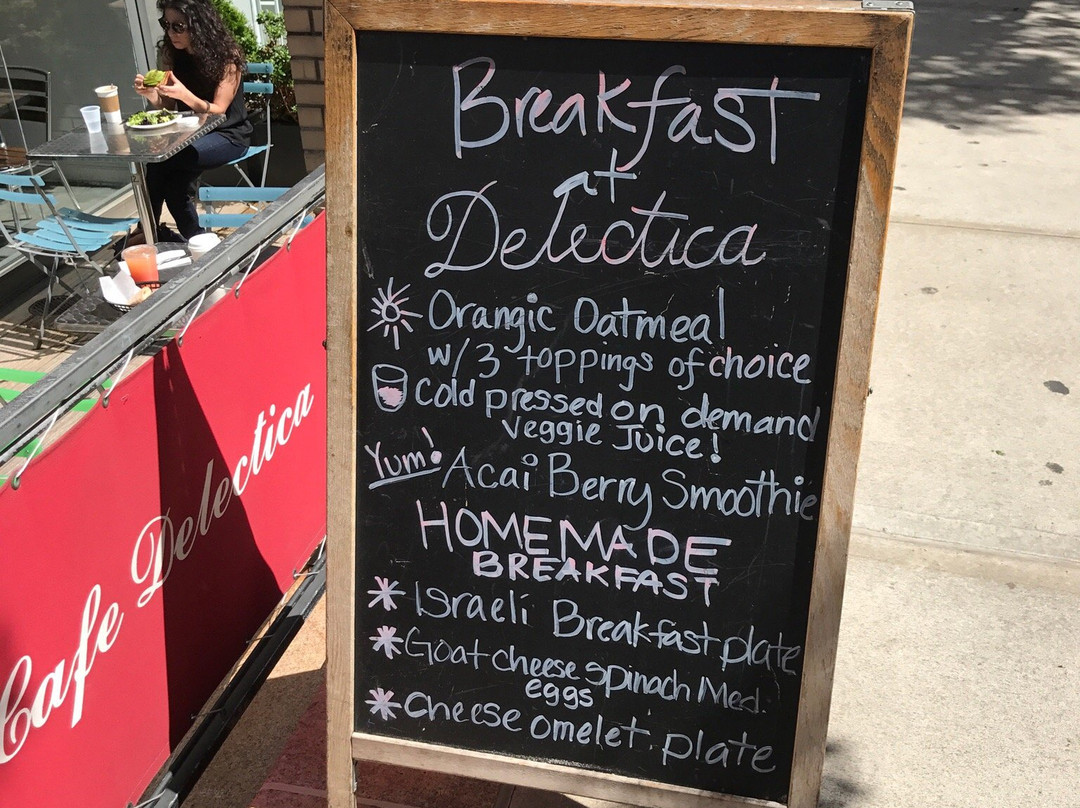 Breakfast
at
Delectica
Orangic Oatmeal
w/3 toppings of choice
Cold pressed on demand
veggie Juice!
Yum! Acai Berry Smoothie
HOMEMADE
BREAKFAST
* Israeli Breakfast plate
* Goat cheese spinach /Med.
eggs
* Cheese omelet plate
Cafe Delectica